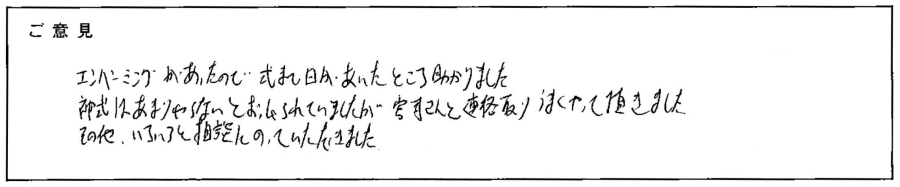 ご意見
エンバーミングがあったので 式まで日が、あいたところ助かりました
神式はあまりやらないとおっしゃられていましたが 宮司さんと連絡取り うまくやって頂きました
その他、いろいろと相談にのっていただきました